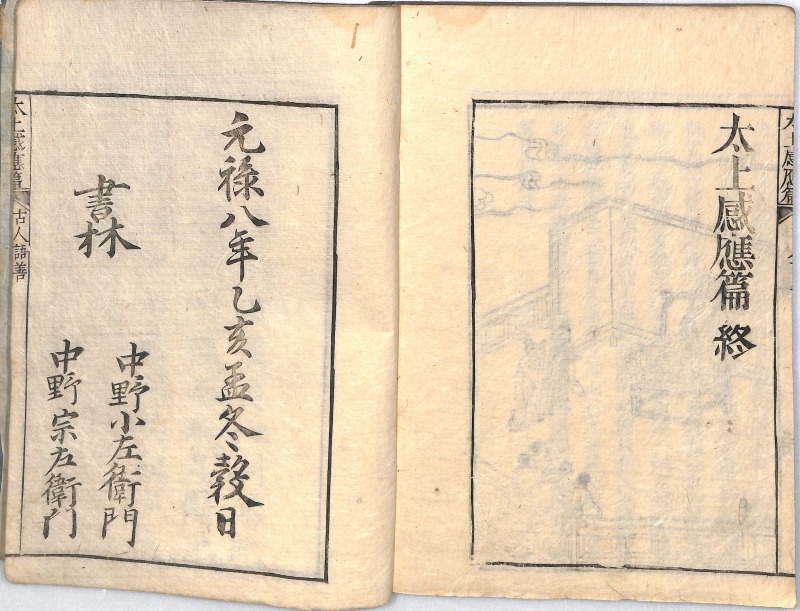 太上感應篇終
元禄八年乙亥孟冬穀日
書林
中野小左衛門
中野宗左衛門
太上感應篇
古人語善